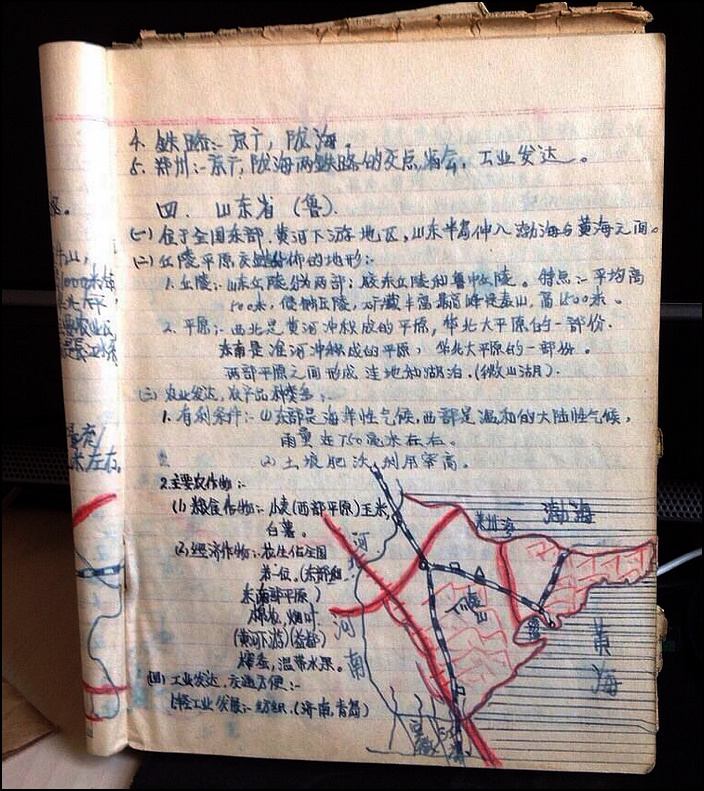 4. 铁路:- 京广, 陇海。
5. 郑州:- 京广, 陇海两铁路的交点, 省会, 工业发达。
四. 山东省 (鲁).
(一) 位于全国东部. 黄河下游地区, 山东半岛伸入渤海与黄海之间。
(二) 丘陵平原交错分佈的地形:-
1. 丘陵:- 山东丘陵分为两部: 胶东丘陵和鲁中丘陵。特点:- 平均高
500米, 侵蚀丘陵, 矿藏丰富最高峰是泰山, 高1500米。
2. 平原:- 西北是黄河冲积成的平原, 华北大平原的一部份.
东南是淮河冲积成的平原, 华北大平原的一部份。
两部平原之间形成洼地和湖泊. (微山湖).
(三) 农业发达, 农产品种类多:-
1. 有利条件:- 山东部是海洋性气候, 西部是温和的大陆性气候,
雨量在750毫米左右。
(2) 土壤肥沃, 利用率高。
2. 主要农作物:-
(1) 粮食作物:- 小麦(西部平原)玉米,
白薯。
(2) 经济作物:- 花生佔全国
第一位. (东部和
东南部平原)
棉花, 烟叶.
(黄河下游)(益都)
柞蚕, 温带水果。
(四) 工业发达, 交通方便:-
1. 轻工业发展:- 纺织. (济南, 青岛)
莱州湾
渤海
河北
河南
黄海
山
米左右,